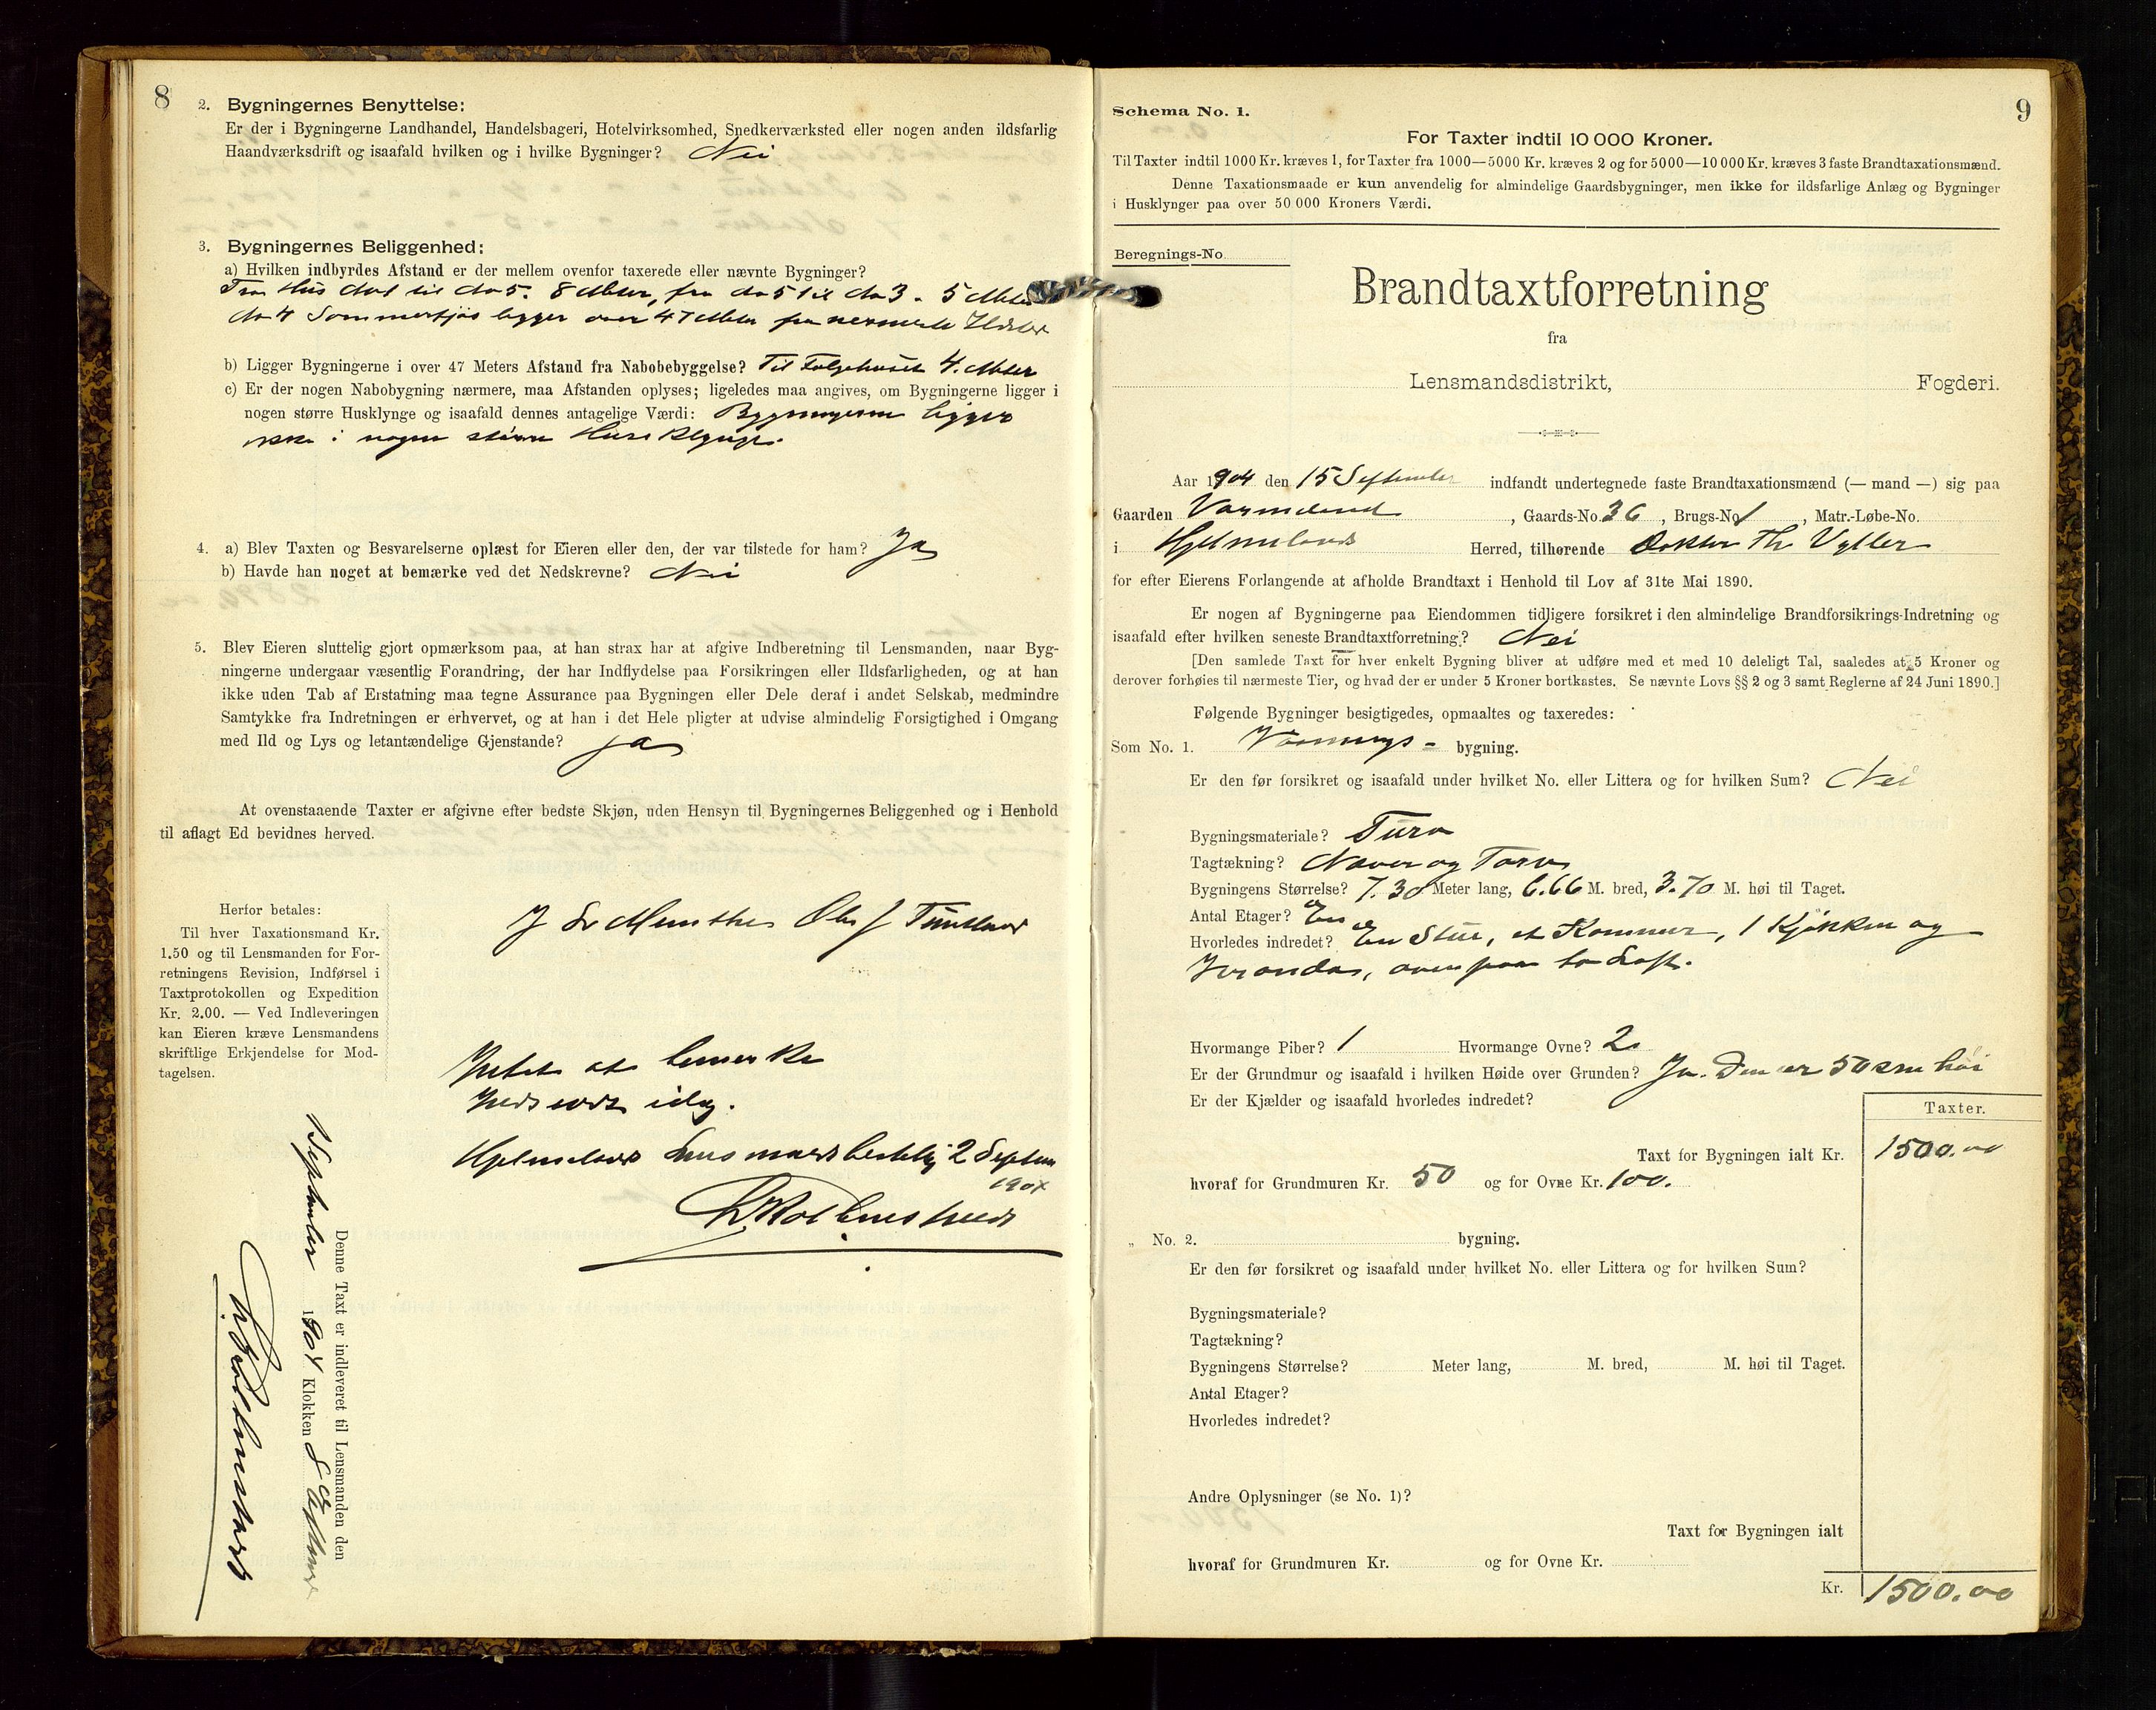 8
2. Bygningernes Benyttelse:
Er der i Bygningerne Landhandel, Handelsbageri, Hotelvirksomhed, Snedkerværksted eller nogen anden ildsfarlig
Haandværksdrift og isaafald hvilken og i hvilke Bygninger? Nei
3. Bygningernes Beliggenhed:
a) Hvilken indbyrdes Afstand er der mellem ovenfor taxerede eller nævnte Bygninger?
Fra Hus do 1 til do 5. 8 Meter, fra do 5 til do 3. 5 Meter
do 4 Sommerfjøs ligger over 47 Meter fra nermeste
b) Ligger Bygningerne i over 47 Meters Afstand fra Nabobebyggelse? Til Folgehuset 4. Meter
c) Er der nogen Nabobygning nærmere, maa Afstanden oplyses; ligeledes maa angives, om Bygningerne ligger i
nogen større Husklynge og isaafald dennes antagelige Værdi: Bygningerne ligger
ikke i nogen større Huseklynge.
4. a) Blev Taxten og Besvarelserne oplæst for Eieren eller den, der var tilstede for ham? Ja
b) Havde han noget at bemærke ved det Nedskrevne? Nei
5. Blev Eieren sluttelig gjort opmærksom paa, at han strax har at afgive Indberetning til Lensmanden, naar Byg-
ningerne undergaar væsentlig Forandring, der har Indflydelse paa Forsikringen eller Ildsfarligheden, og at han
ikke uden Tab af Erstatning maa tegne Assurance paa Bygningen eller Dele deraf i andet Selskab, medmindre
Samtykke fra Indretningen er erhvervet, og at han i det Hele pligter at udvise almindelig Forsigtighed i Omgang
med Ild og Lys og letantændelige Gjenstande? Ja
At ovenstaaende Taxter er afgivne efter bedste Skjøn, uden Hensyn til Bygningernes Beliggenhed og i Henhold
til aflagt Ed bevidnes herved.
Herfor betales:
Til hver Taxationsmand Kr.
1.50 og til Lensmanden for For-
retningens Revision, Indførsel i
Taxtprotokollen og Expedition
Kr. 2.00. — Ved Indleveringen
kan Eieren kræve Lensmandens
skriftlige Erkjendelse for Mod-
tagelsen.
Munthe
Intet at bemerke
Indført idag.
Hjelmeland Lensmandsbestilling 2 Septem
1904
Denne Taxt er indleveret til Lensmanden den
September 1904 Klokken 8
9
Schema No. 1.
For Taxter indtil 10 000 Kroner.
Til Taxter indtil 1000 Kr. kræves 1, for Taxter fra 1000—5000 Kr. kræves 2 og for 5000—10 000 Kr. kræves 3 faste Brandtaxationsmænd.
Denne Taxationsmaade er kun anvendelig for almindelige Gaardsbygninger, men ikke for ildsfarlige Anlæg og Bygninger
i Husklynger paa over 50 000 Kroners Værdi.
Beregnings-No
Brandtaxtforretning
fra
Lensmandsdistrikt, Fogderi.
Aar 1904 den 15 September indfandt undertegnede faste Brandtaxationsmænd (— mand —) sig paa
Gaarden , Gaards-No. 36 , Brugs-No 1 , Matr.-Løbe-No.
i Hjelmelands Herred, tilhørende Doktor Th.
for efter Eierens Forlangende at afholde Brandtaxt i Henhold til Lov af 31te Mai 1890.
Er nogen af Bygningerne paa Eiendommen tidligere forsikret i den almindelige Brandforsikrings-Indretning og
isaafald efter hvilken seneste Brandtaxtforretning? Nei
[Den samlede Taxt for hver enkelt Bygning bliver at udføre med et med 10 deleligt Tal, saaledes at 5 Kroner og
derover forhøies til nærmeste Tier, og hvad der er under 5 Kroner bortkastes. Se nævnte Lovs §§ 2 og 3 samt Reglerne af 24 Juni 1890.]
Følgende Bygninger besigtigedes, opmaaltes og taxeredes:
Som No. 1. Vaanings- bygning.
Er den før forsikret og isaafald under hvilket No. eller Littera og for hvilken Sum? Nei
Bygningsmateriale? Furu
Tagtækning? Næver og Torv
Bygningens Størrelse? 7.30 Meter lang, 6.66 M. bred, 3.70 M. høi til Taget.
Antal Etager? En
Hvorledes indredet? En Stue, et Kammer, 1 Kjøkken og
Veranda, ovenpaa to Loft.
Hvormange Piber? 1 Hvormange Ovne? 2
Er der Grundmur og isaafald i hvilken Høide over Grunden? Ja. Den er 50 cm høi
Er der Kjælder og isaafald hvorledes indredet?
Taxter.
Taxt for Bygningen ialt Kr. 1500.00
hvoraf for Grundmuren Kr. 50 og for Ovne Kr. 100.
„ No. 2. bygning.
Er den før forsikret og isaafald under hvilket No. eller Littera og for hvilken Sum?
Bygningsmateriale?
Tagtækning?
Bygningens Størrelse? Meter lang, M. bred, M. høi til Taget.
Antal Etager?
Hvorledes indredet?
Andre Oplysninger (se No. 1)?
Taxt for Bygningen ialt
hvoraf for Grundmuren Kr. og for Ovne Kr.
Kr. 1500.00